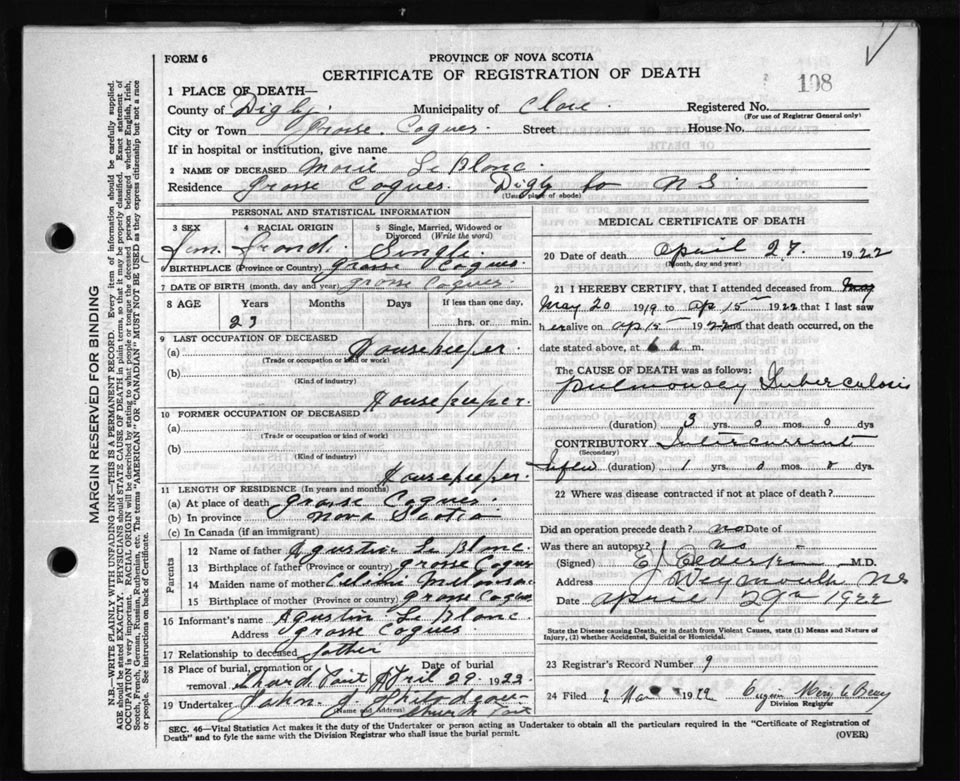 FORM 6
PROVINCE OF NOVA SCOTIA
CERTIFICATE OF REGISTRATION OF DEATH
108
1 PLACE OF DEATH—
County of Digby. Municipality of Clare. Registered No.
(For use of Registrar General only)
City or Town Grosse. Coques. Street House No.
If in hospital or institution, give name
2 NAME OF DECEASED Marie Le Blanc.
Residence Grosse Coques. Digby Co N S.
(Usual place of abode)
PERSONAL AND STATISTICAL INFORMATION
3 SEX 4 RACIAL ORIGIN 5 Single, Married, Widowed or Divorced (Write the word)
Fem. Single.
6 BIRTHPLACE (Province or Country) Grosse Coques.
7 DATE OF BIRTH (month, day and year) Grosse Coques.
8 AGE Years Months Days If less than one day,
23 hrs. or min.
9 LAST OCCUPATION OF DECEASED
(a) Housekeeper.
(Trade or occupation or kind of work)
(b)
(Kind of industry)
Housekeeper.
10 FORMER OCCUPATION OF DECEASED
(a)
(Trade or occupation or kind of work)
(b)
(Kind of industry)
Housekeeper.
11 LENGTH OF RESIDENCE (In years and months)
(a) At place of death Grosse Coques.
(b) In province Nova Scotia
(c) In Canada (if an immigrant)
Parents
12 Name of father Agustin Le Blanc.
13 Birthplace of father (Province or Country) Grosse Coques
14 Maiden name of mother Melanson.
15 Birthplace of mother (Province or Country) Grosse Coques
16 Informant's name Agustin Le Blanc.
Address Grosse Coques
17 Relationship to deceased father
18 Place of burial, cremation or removal Church Point Date of burial April 29. 1922
19 Undertaker John. J. Thibodeau
(Name and Address) Church Point
MEDICAL CERTIFICATE OF DEATH
20 Date of death April 27. 1922
(Month, day and year)
21 I HEREBY CERTIFY, that I attended deceased from May
May 20 1919 to Ap 15 1922 that I last saw
her alive on Ap 15 1922 and that death occurred, on
date stated above, at 6 a m.
The CAUSE OF DEATH was as follows:
Pulmonary Tuberculosis
(duration) 3 yrs. 0 mos. 0 dys
CONTRIBUTORY Intercurrent
(Secondary)
(duration) 1 yrs. 0 mos. 0 dys.
22 Where was disease contracted if not at place of death?
Did an operation precede death? no Date of
Was there an autopsy? no
(Signed) M.D.
Address Weymouth NS
Date April 29th 1922
State the Disease causing Death, or in death from Violent Causes, state (1) Means and Nature of Injury, (2) whether Accidental, Suicidal or Homicidal.
23 Registrar's Record Number 9
24 Filed 2 1922
Division Registrar
SEC. 46—Vital Statistics Act makes it the duty of the Undertaker or person acting as Undertaker to obtain all the particulars required in the "Certificate of Registration of
Death" and to fyle the same with the Division Registrar who shall issue the burial permit.
(OVER)
MARGIN RESERVED FOR BINDING
N.B.—WRITE PLAINLY WITH UNFADING INK—THIS IS A PERMANENT RECORD. Every item of information should be carefully supplied.
AGE should be stated EXACTLY. PHYSICIANS should STATE CAUSE OF DEATH in plain terms, so that it may be properly classified. Exact statement of
OCCUPATION is very important. RACIAL ORIGIN will be described by stating to what people or tongue the deceased person belonged whether English, Irish,
Scotch, French, German, Russian, Ruthenian, etc. The terms "AMERICAN" OR "CANADIAN" MUST NOT BE USED as they express citizenship but not a race
or people. See instructions on back of Certificate.